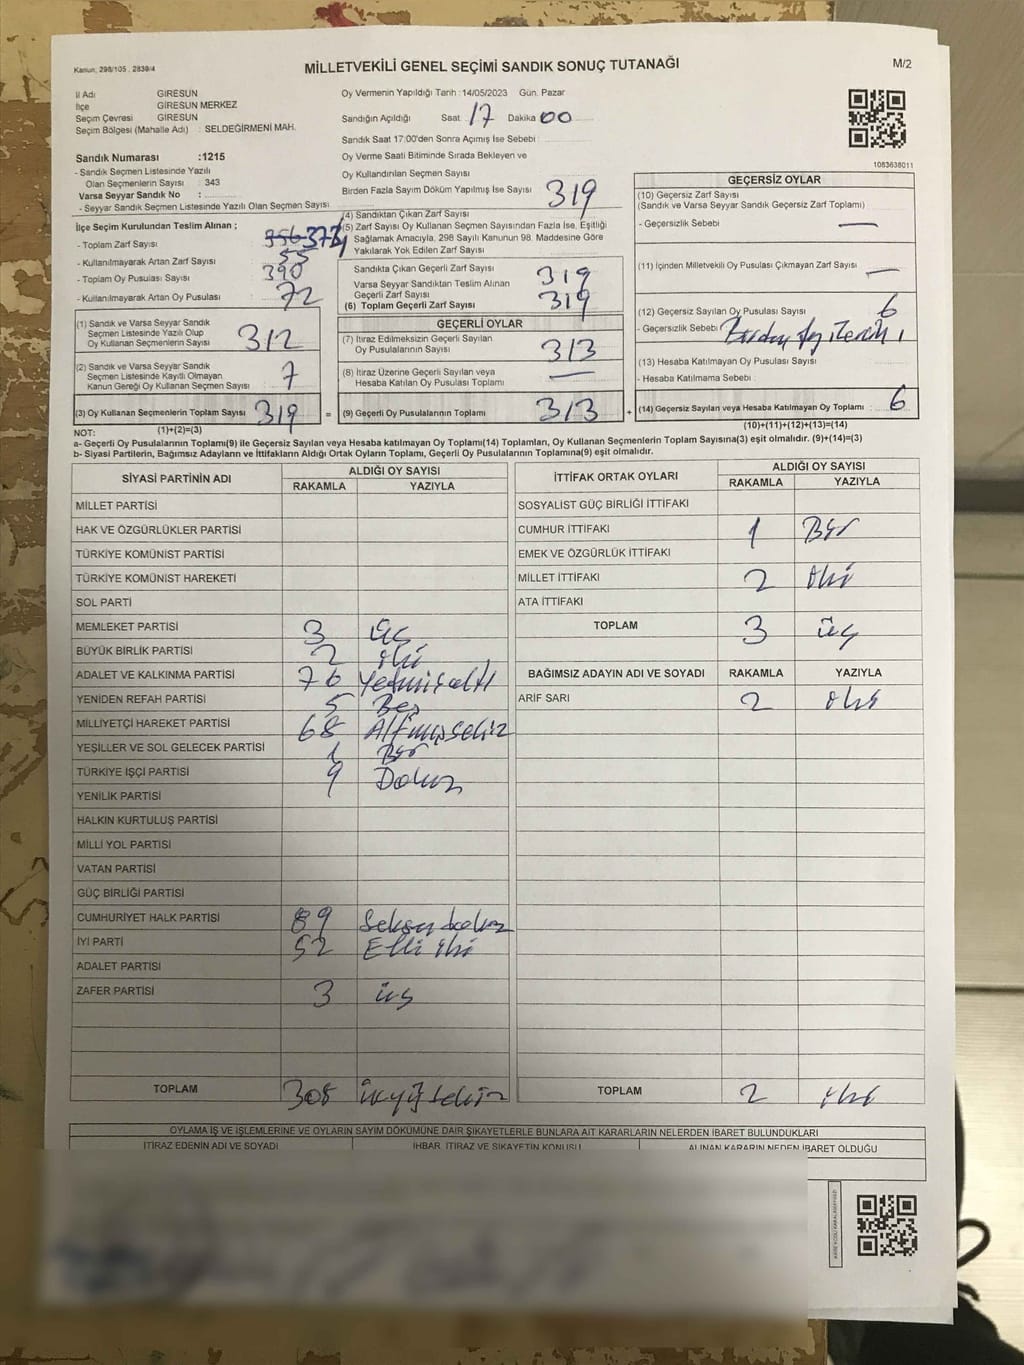 Kanun; 298/105 , 2839/4
MİLLETVEKİLİ GENEL SEÇİMİ SANDIK SONUÇ TUTANAĞI
M/2
İl Adı GİRESUN
İlçe GİRESUN MERKEZ
Seçim Çevresi GİRESUN
Seçim Bölgesi (Mahalle Adı) : SELDEĞİRMENİ MAH.
Sandık Numarası :1215
- Sandık Seçmen Listesinde Yazılı
Olan Seçmenlerin Sayısı : 343
Varsa Seyyar Sandık No :
- Seyyar Sandık Seçmen Listesinde Yazılı Olan Seçmen Sayısı
Oy Vermenin Yapıldığı Tarih : 14/05/2023 Gün. Pazar
Sandığın Açıldığı Saat 17 Dakika 00
Sandık Saat 17:00'den Sonra Açımış İse Sebebi :
Oy Verme Saati Bitiminde Sırada Bekleyen ve
Oy Kullandırılan Seçmen Sayısı
Birden Fazla Sayım Döküm Yapılmış İse Sayısı
1083638011
İlçe Seçim Kurulundan Teslim Alınan ;
- Toplam Zarf Sayısı 356 374
- Kullanılmayarak Artan Zarf Sayısı 55
- Toplam Oy Pusulası Sayısı 390
- Kullanılmayarak Artan Oy Pusulası 72
(1) Sandık ve Varsa Seyyar Sandık
Seçmen Listesinde Yazılı Olup
Oy Kullanan Seçmenlerin Sayısı 312
(2) Sandık ve Varsa Seyyar Sandık
Seçmen Listesinde Kayıtlı Olmayan
Kanun Gereği Oy Kullanan Seçmen Sayısı 7
(3) Oy Kullanan Seçmenlerin Toplam Sayısı 319 =
(1)+(2)=(3)
(4) Sandıktan Çıkan Zarf Sayısı 319
(5) Zarf Sayısı Oy Kullanan Seçmen Sayısından Fazla İse, Eşitliği
Sağlamak Amacıyla, 298 Sayılı Kanunun 98. Maddesine Göre
Yakılarak Yok Edilen Zarf Sayısı
Sandıkta Çıkan Geçerli Zarf Sayısı 319
Varsa Seyyar Sandıktan Teslim Alınan
Geçerli Zarf Sayısı
(6) Toplam Geçerli Zarf Sayısı 319
GEÇERLİ OYLAR
(7) İtiraz Edilmeksizin Geçerli Sayılan
Oy Pusulalarının Sayısı 313
(8) İtiraz Üzerine Geçerli Sayılan veya
Hesaba Katılan Oy Pusulası Toplamı —
(9) Geçerli Oy Pusulalarının Toplamı 313 +
GEÇERSİZ OYLAR
(10) Geçersiz Zarf Sayısı
(Sandık ve Varsa Seyyar Sandık Geçersiz Zarf Toplamı)
- Geçersizlik Sebebi : —
(11) İçinden Milletvekili Oy Pusulası Çıkmayan Zarf Sayısı —
(12) Geçersiz Sayılan Oy Pusulası Sayısı 6
- Geçersizlik Sebebi :
(13) Hesaba Katılmayan Oy Pusulası Sayısı
- Hesaba Katılmama Sebebi :
(14) Geçersiz Sayılan veya Hesaba Katılmayan Oy Toplamı : 6
(10)+(11)+(12)+(13)=(14)
NOT:
a- Geçerli Oy Pusulalarının Toplamı(9) ile Geçersiz Sayılan veya Hesaba katılmayan Oy Toplamı(14) Toplamları, Oy Kullanan Seçmenlerin Toplam Sayısına(3) eşit olmalıdır. (9)+(14)=(3)
b- Siyasi Partilerin, Bağımsız Adayların ve İttifakların Aldığı Ortak Oyların Toplamı, Geçerli Oy Pusulalarının Toplamına(9) eşit olmalıdır.
SİYASİ PARTİNİN ADI ALDIĞI OY SAYISI
RAKAMLA YAZIYLA
MİLLET PARTİSİ
HAK VE ÖZGÜRLÜKLER PARTİSİ
TÜRKİYE KOMÜNİST PARTİSİ
TÜRKİYE KOMÜNİST HAREKETİ
SOL PARTİ
MEMLEKET PARTİSİ 3 Üç
BÜYÜK BİRLİK PARTİSİ 2 iki
ADALET VE KALKINMA PARTİSİ 76 Yetmişaltı
YENİDEN REFAH PARTİSİ 5 Beş
MİLLİYETÇİ HAREKET PARTİSİ 68 Altmışsekiz
YEŞİLLER VE SOL GELECEK PARTİSİ 1 Bir
TÜRKİYE İŞÇİ PARTİSİ 9 Dokuz
YENİLİK PARTİSİ
HALKIN KURTULUŞ PARTİSİ
MİLLİ YOL PARTİSİ
VATAN PARTİSİ
GÜÇ BİRLİĞİ PARTİSİ
CUMHURİYET HALK PARTİSİ 89 Seksen dokuz
İYİ PARTİ 52 Elli iki
ADALET PARTİSİ
ZAFER PARTİSİ 3 üç
TOPLAM 308 üçyüzsekiz
İTTİFAK ORTAK OYLARI ALDIĞI OY SAYISI
RAKAMLA YAZIYLA
SOSYALİST GÜÇ BİRLİĞİ İTTİFAKI
CUMHUR İTTİFAKI 1 Bir
EMEK VE ÖZGÜRLÜK İTTİFAKI
MİLLET İTTİFAKI 2 iki
ATA İTTİFAKI
TOPLAM 3 üç
BAĞIMSIZ ADAYIN ADI VE SOYADI RAKAMLA YAZIYLA
ARİF SARI 2 iki
TOPLAM 2 iki
OYLAMA İŞ VE İŞLEMLERİNE VE OYLARIN SAYIM DÖKÜMÜNE DAİR ŞİKAYETLERLE BUNLARA AİT KARARLARIN NELERDEN İBARET BULUNDUKLARI
İTİRAZ EDENİN ADI VE SOYADI İHBAR, İTİRAZ VE ŞİKAYETİN KONUSU ALINAN KARARIN NEDEN İBARET OLDUĞU